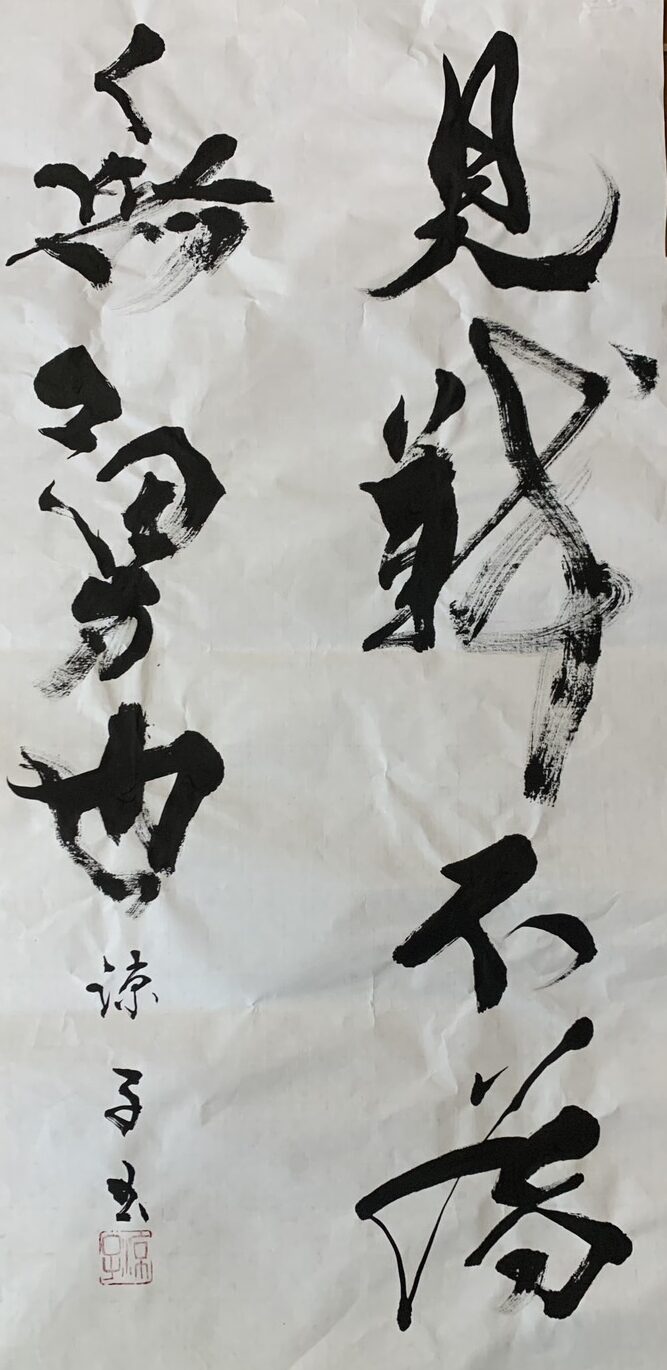 見義不為
無勇也
諒子書